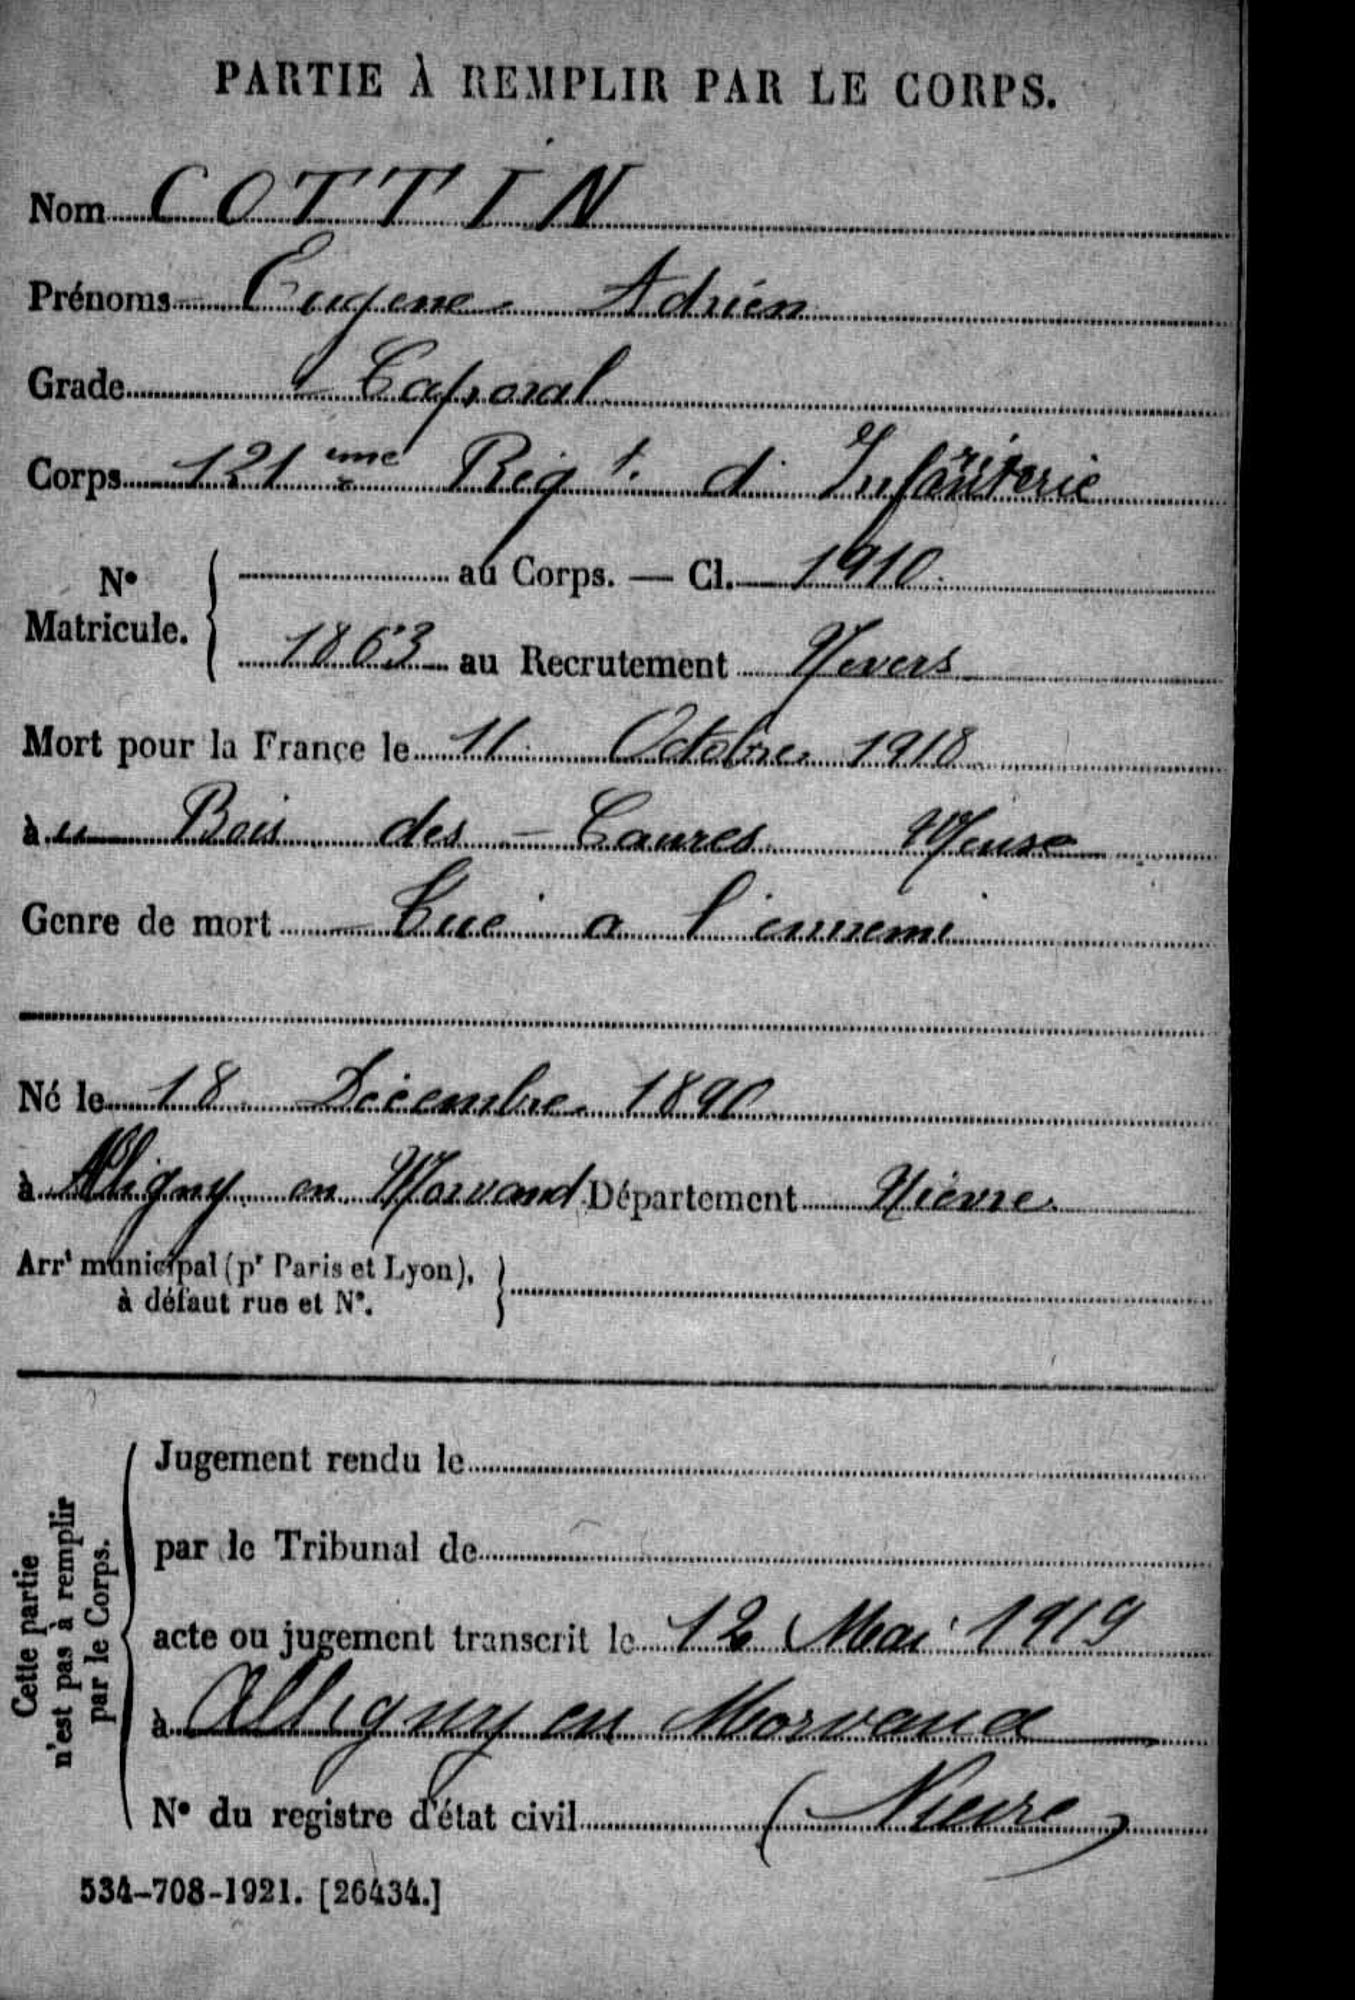 PARTIE À REMPLIR PAR LE CORPS.
Nom COTTIN
Prénoms Eugene Adrien
Grade Caporal
Corps 121 eme Reg t. d' Infanterie
N° Matricule. { au Corps. — Cl. 1910
1863 au Recrutement Nevers
Mort pour la France le 11 Octobre 1918
à u Bois des - Caures Meuse
Genre de mort Tué a l'ennemi
Né le 18 Décembre 1890
à Alligny en Morvand Département Nièvre
Arrt municipal (pr Paris et Lyon), }
à défaut rue et N°.
Cette partie
n'est pas à remplir
par le Corps.
Jugement rendu le
par le Tribunal de
acte ou jugement transcrit le 12 Mai 1919
à Alligny en Morvand
N° du registre d'état civil (Nievre)
534-708-1921. [26434.]